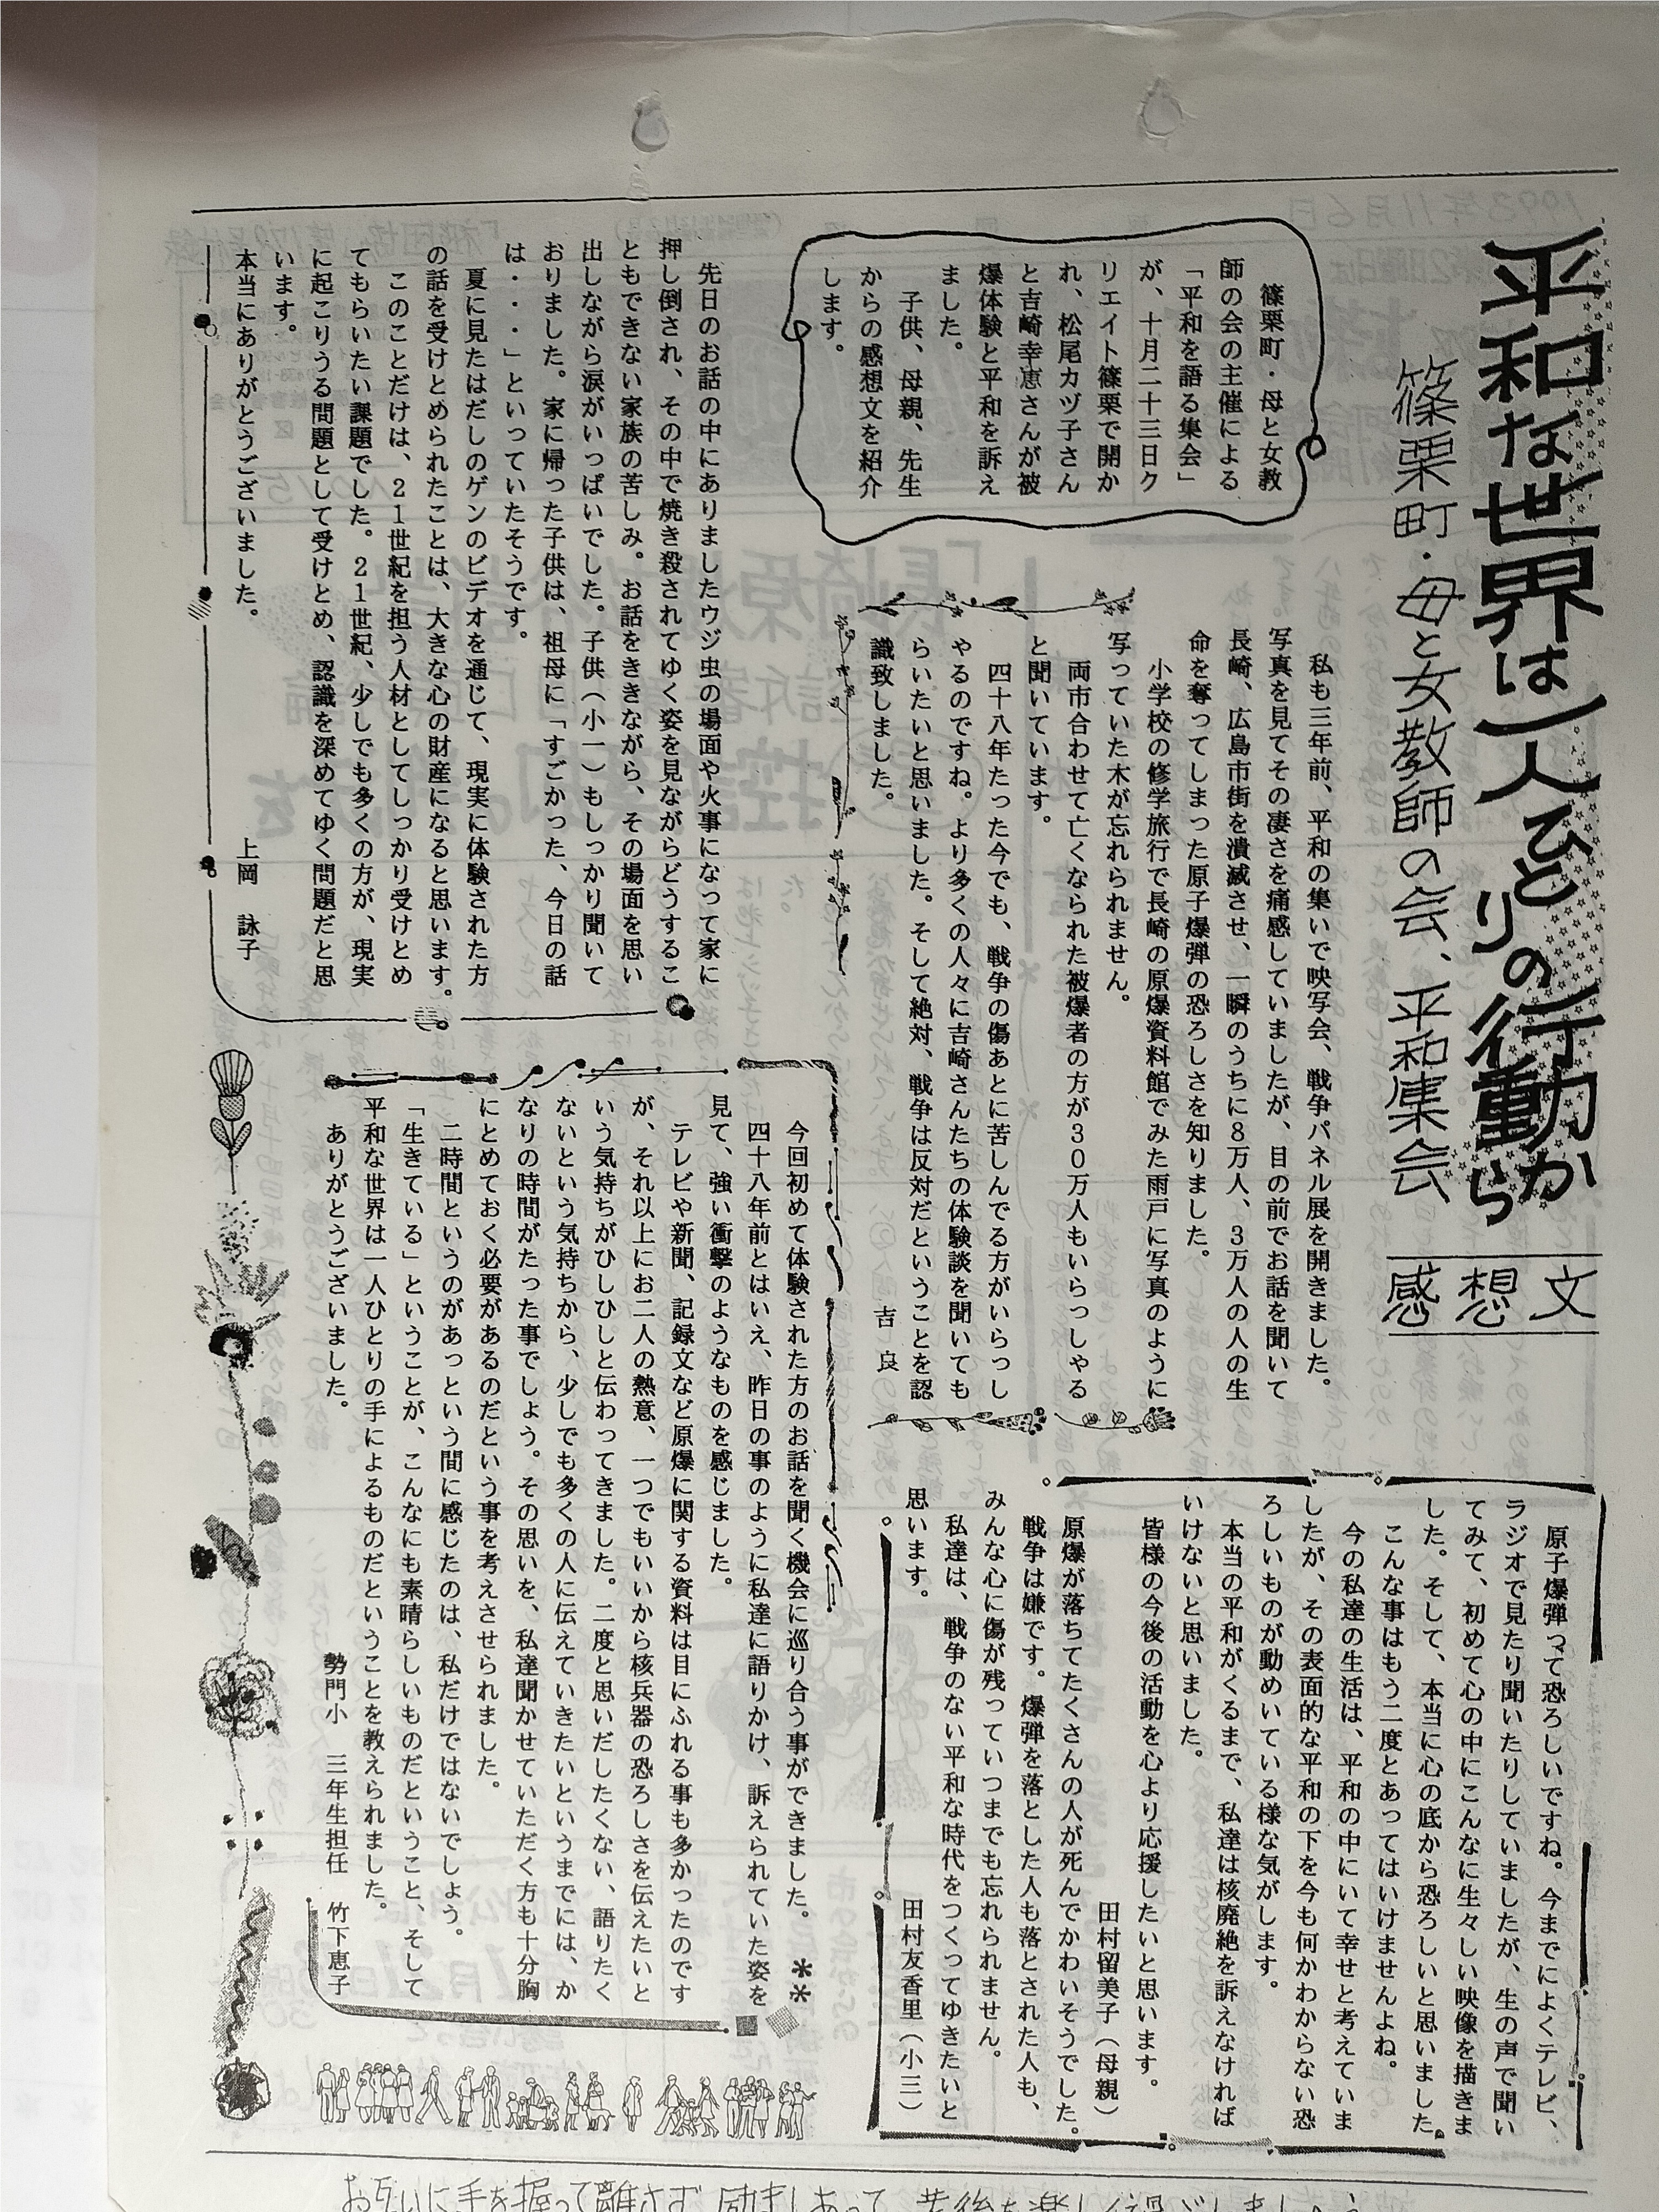 平和な世界は一人ひとりの行動から
篠栗町・母と女教師の会、平和集会
感想文
篠栗町・母と女教
師の会の主催による
「平和を語る集会」
が、十月二十三日ク
リエイト篠栗で開か
れ、松尾カヅ子さん
と吉崎幸恵さんが被
爆体験と平和を訴え
ました。
子供、母親、先生
からの感想文を紹介
します。
私も三年前、平和の集いで映写会、戦争パネル展を開きました。
写真を見てその凄さを痛感していましたが、目の前でお話を聞いて
長崎、広島市街を潰滅させ、一瞬のうちに8万人、3万人の人の生
命を奪ってしまった原子爆弾の恐ろしさを知りました。
小学校の修学旅行で長崎の原爆資料館でみた雨戸に写真のように
写っていた木が忘れられません。
両市合わせて亡くなられた被爆者の方が30万人もいらっしゃる
と聞いています。
四十八年たった今でも、戦争の傷あとに苦しんでる方がいらっし
やるのですね。より多くの人々に吉崎さんたちの体験談を聞いても
らいたいと思いました。そして絶対、戦争は反対だということを認
識致しました。
吉 良
原子爆弾って恐ろしいですね。今までによくテレビ、
ラジオで見たり聞いたりしていましたが、生の声で聞い
てみて、初めて心の中にこんなに生々しい映像を描きま
した。そして、本当に心の底から恐ろしいと思いました。
こんな事はもう二度とあってはいけませんよね。
今の私達の生活は、平和の中にいて幸せと考えていま
したが、その表面的な平和の下を今も何かわからない恐
ろしいものが動めいている様な気がします。
本当の平和がくるまで、私達は核廃絶を訴えなければ
いけないと思いました。
皆様の今後の活動を心より応援したいと思います。
田村留美子（母親）
原爆が落ちてたくさんの人が死んでかわいそうでした。
戦争は嫌です。爆弾を落とした人も落とされた人も、
みんな心に傷が残っていつまでも忘れられません。
私達は、戦争のない平和な時代をつくってゆきたいと
思います。
田村友香里（小三）
先日のお話の中にありましたウジ虫の場面や火事になって家に
押し倒され、その中で焼き殺されてゆく姿を見ながらどうするこ
ともできない家族の苦しみ。お話をききながら、その場面を思い
出しながら涙がいっぱいでした。子供（小一）もしっかり聞いて
おりました。家に帰った子供は、祖母に「すごかった、今日の話
は・・・」といっていたそうです。
夏に見たはだしのゲンのビデオを通じて、現実に体験された方
の話を受けとめられたことは、大きな心の財産になると思います。
このことだけは、21世紀を担う人材としてしっかり受けとめ
てもらいたい課題でした。21世紀、少しでも多くの方が、現実
に起こりうる問題として受けとめ、認識を深めてゆく問題だと思
います。
本当にありがとうございました。
上岡 詠子
今回初めて体験された方のお話を聞く機会に巡り合う事ができました。 **
四十八年前とはいえ、昨日の事のように私達に語りかけ、訴えられていた姿を
見て、強い衝撃のようなものを感じました。
テレビや新聞、記録文など原爆に関する資料は目にふれる事も多かったのです
が、それ以上にお二人の熱意、一つでもいいから核兵器の恐ろしさを伝えたいと
いう気持ちがひしひしと伝わってきました。二度と思いだしたくない、語りたく
ないという気持ちから、少しでも多くの人に伝えていきたいというまでには、か
なりの時間がたった事でしょう。その思いを、私達聞かせていただく方も十分胸
にとめておく必要があるのだという事を考えさせられました。
二時間というのがあっという間に感じたのは、私だけではないでしょう。
「生きている」ということが、こんなにも素晴らしいものだということ、そして
平和な世界は一人ひとりの手によるものだということを教えられました。
ありがとうございました。
勢門小 三年生担任 竹下恵子
お互いに手を握って離さず 励ましあって